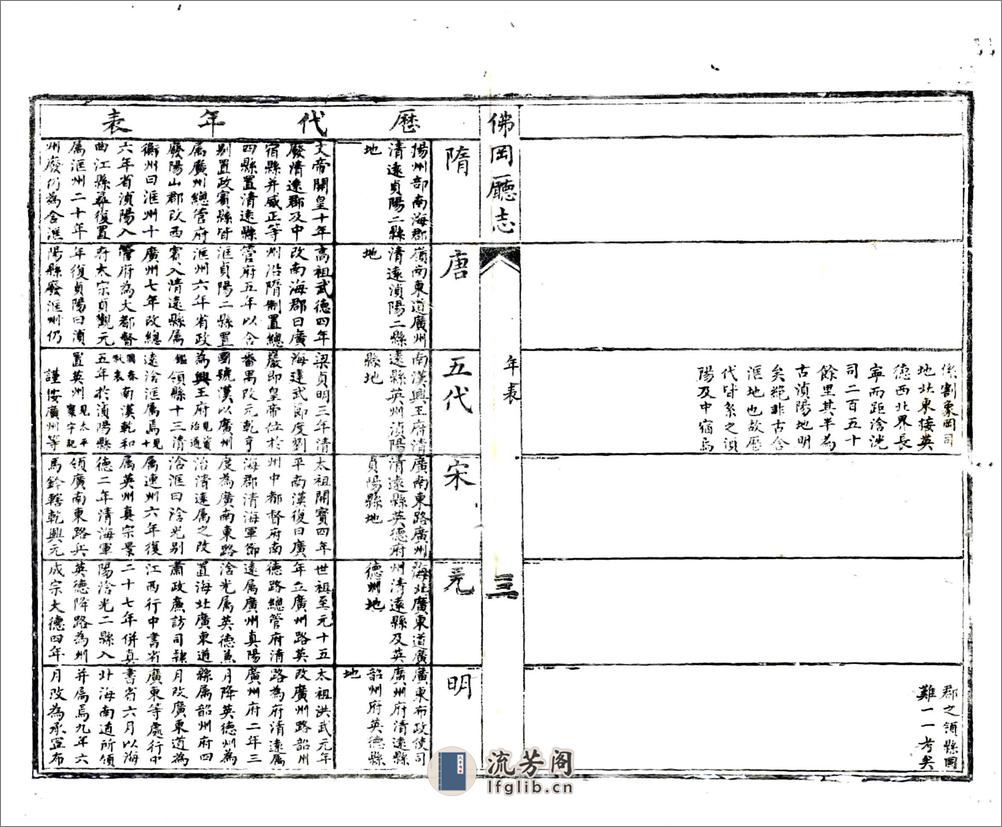 佛岡廳志
年表
三
係割東岡司
地北東接英
德西北界長
寧而距浛洸
司二百五十
餘里其半為
古湞陽地明
矣絕非古含
洭地也故歷
代皆系之湞
陽及中宿焉
郡之領縣岡
難一一考矣
歷代年表
隋
揚州部南海郡
清遠貞陽二縣
地
文帝開皇十年
廢清遠郡及中
宿縣并威正等
四縣置清遠縣
別置政賓縣皆
屬廣州總管府
廢陽山郡改西
衡州曰洭州十
六年省湞陽入
曲江縣尋復置
屬洭州二十年
州廢仍為含洭
唐
嶺南東道廣州
清遠湞陽二縣
地
高祖武德四年
改南海郡曰廣
州沿隋制置總
管府五年以含
洭貞陽二縣置
洭州六年省政
賓入清遠縣屬
廣州七年改總
管府為大都督
府太宗貞觀元
年復貞陽曰湞
陽縣廢洭州仍
五代
南漢興王府清
遠縣英州湞陽
縣地
梁貞明三年清
海建武節度劉
巖即皇帝位於
番禺改元乾亨
國號漢以廣州
為興王府治
領縣十三清
遠浛洭屬焉
南漢乾和
五年於湞陽縣
置英州見太平寰宇記
謹按廣州等
宋
廣南東路廣州
清遠縣英德府
貞陽縣地
太祖開寶四年
平南漢復曰廣
州中都督府南
海郡清海軍節
度為廣南東路
治清遠屬之改
浛洭曰浛光別
屬連州六年復
屬英州真宗景
德二年清海軍
領廣南東路兵
馬鈐轄乾興元
元
海北廣東道廣
州清遠縣及英
德州地
世祖至元十五
年立廣州路英
德路總管府清
遠屬廣州真陽
浛光屬英德蕉
置海北廣東道
肅政廉訪司隸
江西行中書省
二十七年併真
陽浛光二縣入
英德降路為州
成宗大德四年
明
廣東布政使司
廣州府清遠縣
韶州府英德縣
地
太祖洪武元年
改廣州路韶州
路為府清遠屬
廣州府二年三
月降英德州為
縣屬韶州府四
月改廣東道為
廣東等處行中
書省六月以海
北海南道所領
并屬焉九年六
月改為承宣布
流芳阁
lfglib.cn